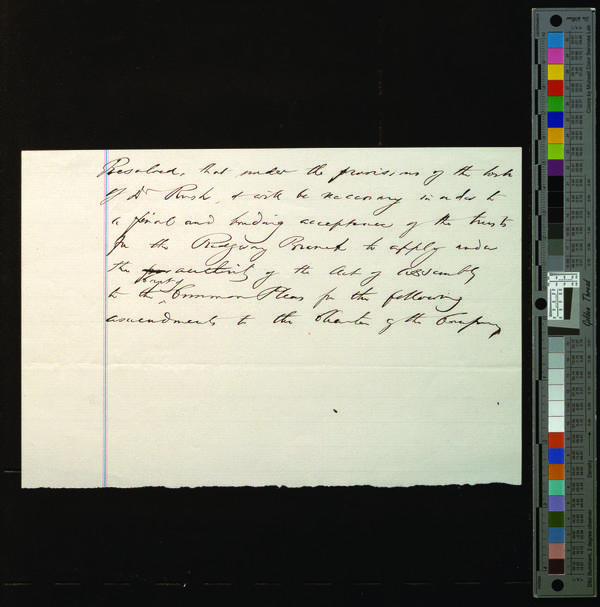 Resolved, that under the provisions of the will
of Dr Rush, it will be necessary in order to
a final and binding acceptance of the trusts
for the Ridgway Branch to apply under
the authority of the Act of Assembly
to the Court of Common Pleas for the following
amendments to the Charter of the Company
Golden Thread